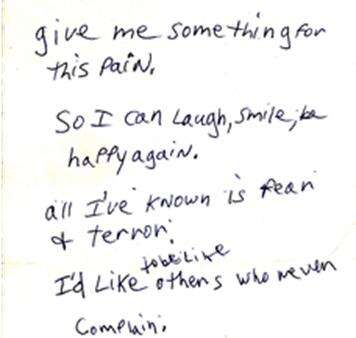 give me something for
this PaiN.
So I can Laugh, smile, be
happy again.
all I've known is fear
& terror.
to be Like
I'd Like others who never
Complain.